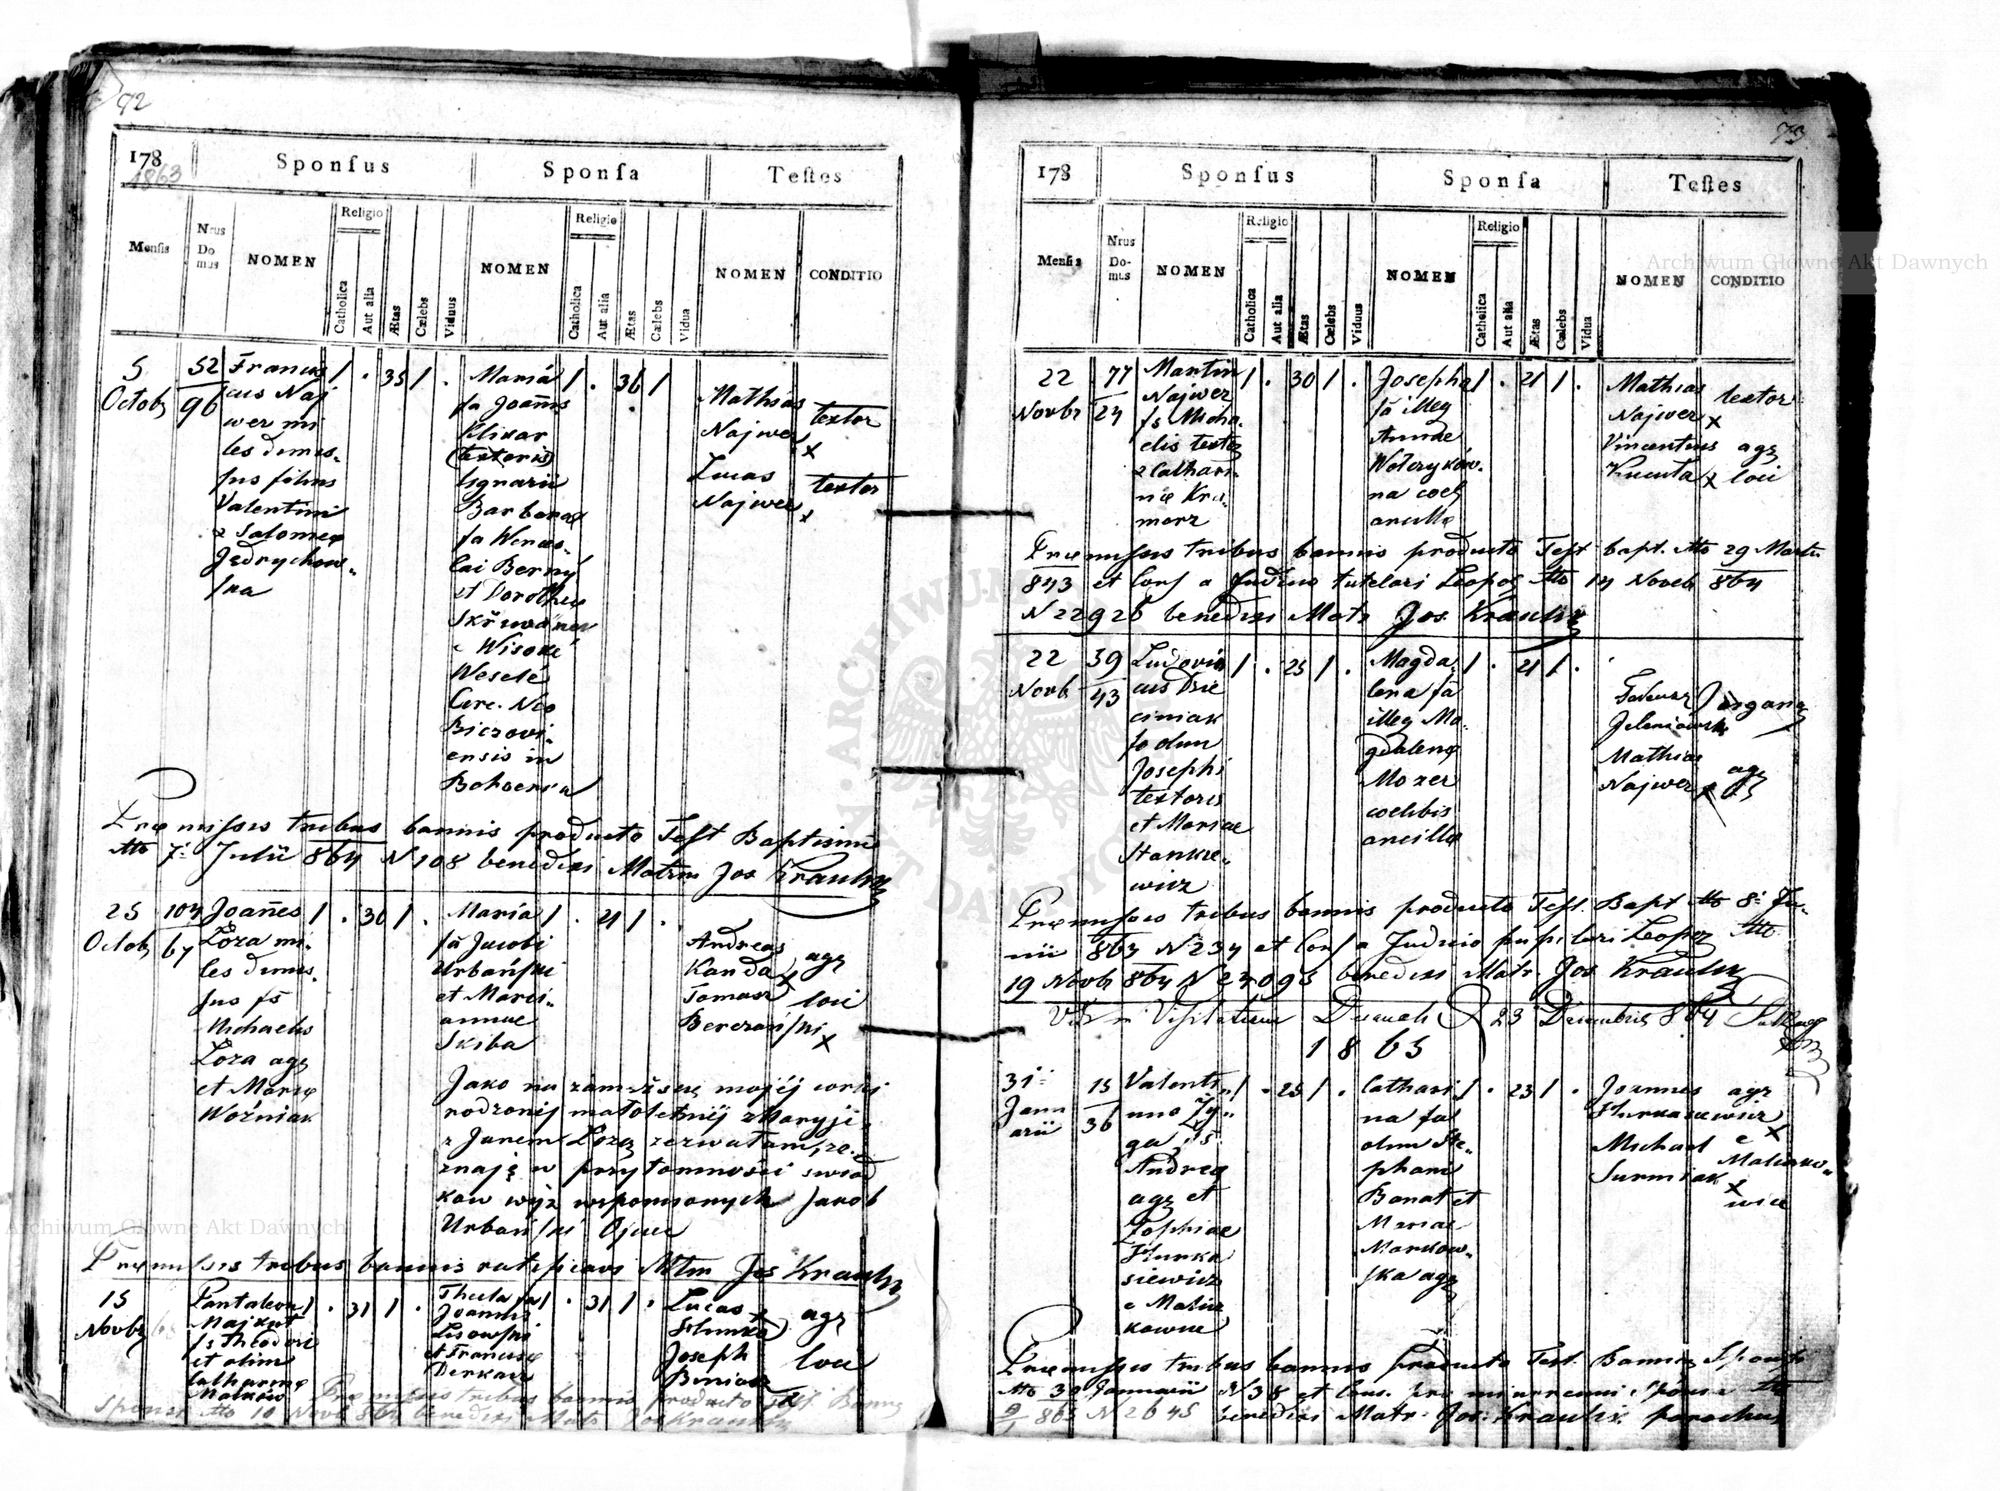 72
178
1863
Sponſus
Sponſa
Teſtes
Menſis
Nrus Domus
NOMEN
Religio
Catholica
Aut alia
Ætas
Cœlebs
Viduus
NOMEN
Religio
Catholica
Aut alia
Ætas
Cœlebs
Vidua
NOMEN
CONDITIO
5
Octob
52
96
Francis
cus Naj
wer mi
les dimis-
sus filius
Valentini
& Salomeæ
Jędrychow-
ska
/ . 35 / .
Maria
fa Joannis
Klikar
(textoris)
lignarii
Barbaræ
fa Wences-
lai Berný
et Dorotheæ
Skřiwánek
e Wisoké
Weselé
Circ. Neo
Biczovi-
ensis in
Bohoemia
/ . 36 /
Mathias
Najwer x
textor
Lucas
Najwer x
textor
Præmissis tribus bannis producto Test Baptismi
dtto 7. Julii 864 N 108 benedixi Matrm Jos Kraulix
25
Octob
104
67
Joañes
Łoza mi-
les dimis-
sus fs
Michaelis
Łoza agr
et Mariæ
Woźniak
/ . 30 / .
Maria
fa Jacobi
Urbański
et Mari-
annae
Skiba
/ . 21 / .
Andreas
Kanda x
Tomasz
Berezański x
agr
loci
Jako na zamęźscie mojéj córki
rodzonéj małoletnéj Maryji
z Janem Łozą zezwałam, ze-
znaję w przytomności świad
ków wyż wspomionych Jakob
Urbański Ojciec
Præmissis tribus bannis ratificavi Mtm Jos Kraulix
15
Novbr
Pantaleon
Majkut
fs Theodori
et olim
Catharinæ
Malków
/ . 31 / .
Thecla fa
Joannis
Lisowski
et Franciscæ
Derkacz
/ . 31 / .
Lucas
Joseph
Beniasz
agr
loci
Præmissis tribus bannis producto Test. Bannor
Sponsi dtto 10 Novb 864 benedixi Matr Jos Kraulix
73
178
Sponſus
Sponſa
Teſtes
Menſis
Nrus Domus
NOMEN
Religio
Catholica
Aut alia
Ætas
Cœlebs
Viduus
NOMEN
Religio
Catholica
Aut alia
Ætas
Cœlebs
Vidua
NOMEN
CONDITIO
22
Novbr
77
24
Martin
Najwer
fs Micha-
elis textor
& Cathari-
næ Kra-
marz
/ . 30 / .
Josepha
fa illeg
Annae
Wołczyków-
na coel
ancillæ
/ . 21 / .
Mathias
Najwer x
textor
Vincentius
Kucuła x
agr
loci
Præmissis tribus bannis producto Test bapt. dtto 29 Martii
843 et Cons a Judicio tutelari Leopol dtto 14 Noveb 864
N 22926 benedixi Matr Jos. Kraulix
22
Novb
39
43
Ludovi-
cus Dzie
ciniak
fs olim
Josephi
textoris
et Mariae
Stankie-
wicz
/ . 25 / .
Magda-
lena fa
illeg Ma-
gdalenæ
Mozer
coelibis
ancillæ
/ . 21 / .
Jeleniowski
organ
Mathias
Najwer x
agr
Præmissis tribus bannis producto Test. Bapt dtto 8. Ju-
nii 863 N 234 et Cons a Judicio pupilari Leopol dtto
19 Novbr 864 N 23096 benedixi Matr Jos. Kraulix
Visitatione Decanali 23 Decembris 864
1865
31
Janu
arii
15
36
Valenti-
nus Zy-
ga, fs
Andreæ
agr et
Sophiae
Hurka
siewicz
e Malin
kowice
/ . 25 / .
Cathari
na fa
olim Ste-
phani
Banat et
Mariae
Markow-
ska agr
/ . 23 / .
Joannes
Hurkasiewicz x
agr
Michael
Surmiak x
e
Malinko-
wice
Præmissis tribus bannis producto Test. Bannor Sponsi
dtto 30 Januarii N 38 et Cons. pro minorenni Sponsa dtto
865 N 2645 benedixi Matr. Jos. Kraulix parochus
Archiwum Główne Akt Dawnych
Archiwum Główne Akt Dawnych
ARCHIWUM
AKT DAWNYCH